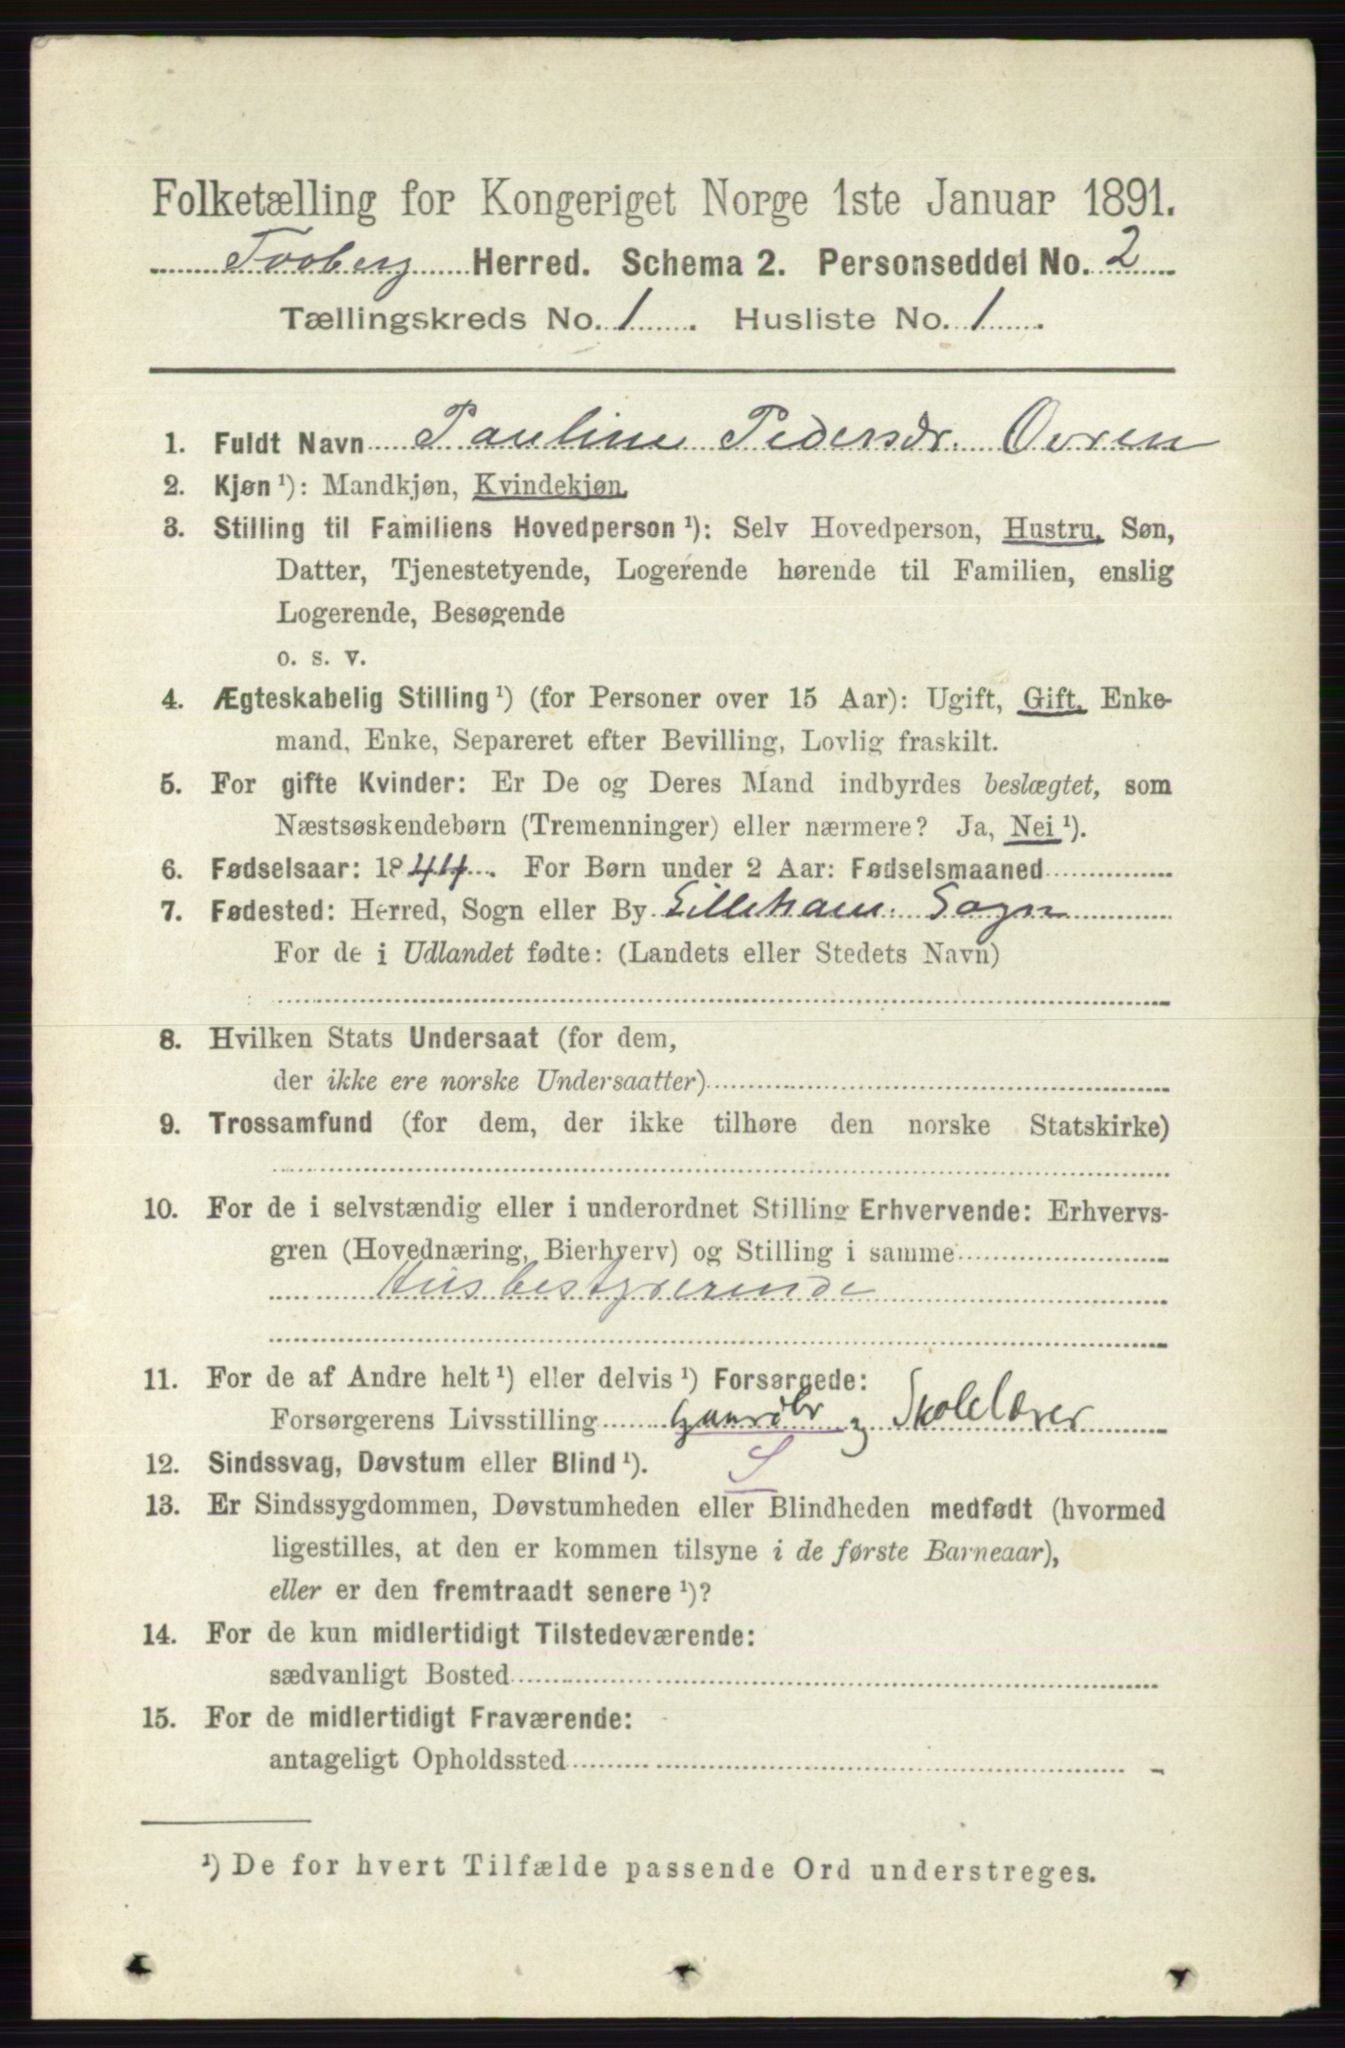 Folketælling for Kongeriget Norge 1ste Januar 1891.
Faaberg Herred. Schema 2. Personseddel No. 2
Tællingskreds No. 1. Husliste No. 1.
1. Fuldt Navn Pauline Pedersdr. Ovren
2. Kjøn ¹): Mandkjøn, Kvindekjøn.
3. Stilling til Familiens Hovedperson ¹): Selv Hovedperson, Hustru, Søn,
Datter, Tjenestetyende, Logerende hørende til Familien, enslig
Logerende, Besøgende
o. s. v.
4. Ægteskabelig Stilling ¹) (for Personer over 15 Aar): Ugift, Gift, Enke-
mand, Enke, Separeret efter Bevilling, Lovlig fraskilt.
5. For gifte Kvinder: Er De og Deres Mand indbyrdes beslægtet, som
Næstsøskendebørn (Tremenninger) eller nærmere? Ja, Nei ¹).
6. Fødselsaar: 1844. For Børn under 2 Aar: Fødselsmaaned
7. Fødested: Herred, Sogn eller By Lilleham: Sogn
For de i Udlandet fødte: (Landets eller Stedets Navn)
8. Hvilken Stats Undersaat (for dem,
der ikke ere norske Undersaatter)
9. Trossamfund (for dem, der ikke tilhøre den norske Statskirke)
10. For de i selvstændig eller i underordnet Stilling Erhvervende: Erhvervs-
gren (Hovednæring, Bierhverv) og Stilling i samme
Husbestyrerinde
11. For de af Andre helt ¹) eller delvis ¹) Forsørgede:
Forsørgerens Livsstilling Gaardbr og Skolelærer
12. Sindssvag, Døvstum eller Blind ¹). S
13. Er Sindssygdommen, Døvstumheden eller Blindheden medfødt (hvormed
ligestilles, at den er kommen tilsyne i de første Barneaar),
eller er den fremtraadt senere ¹)?
14. For de kun midlertidigt Tilstedeværende:
sædvanligt Bosted
15. For de midlertidigt Fraværende:
antageligt Opholdssted
¹) De for hvert Tilfælde passende Ord understreges.